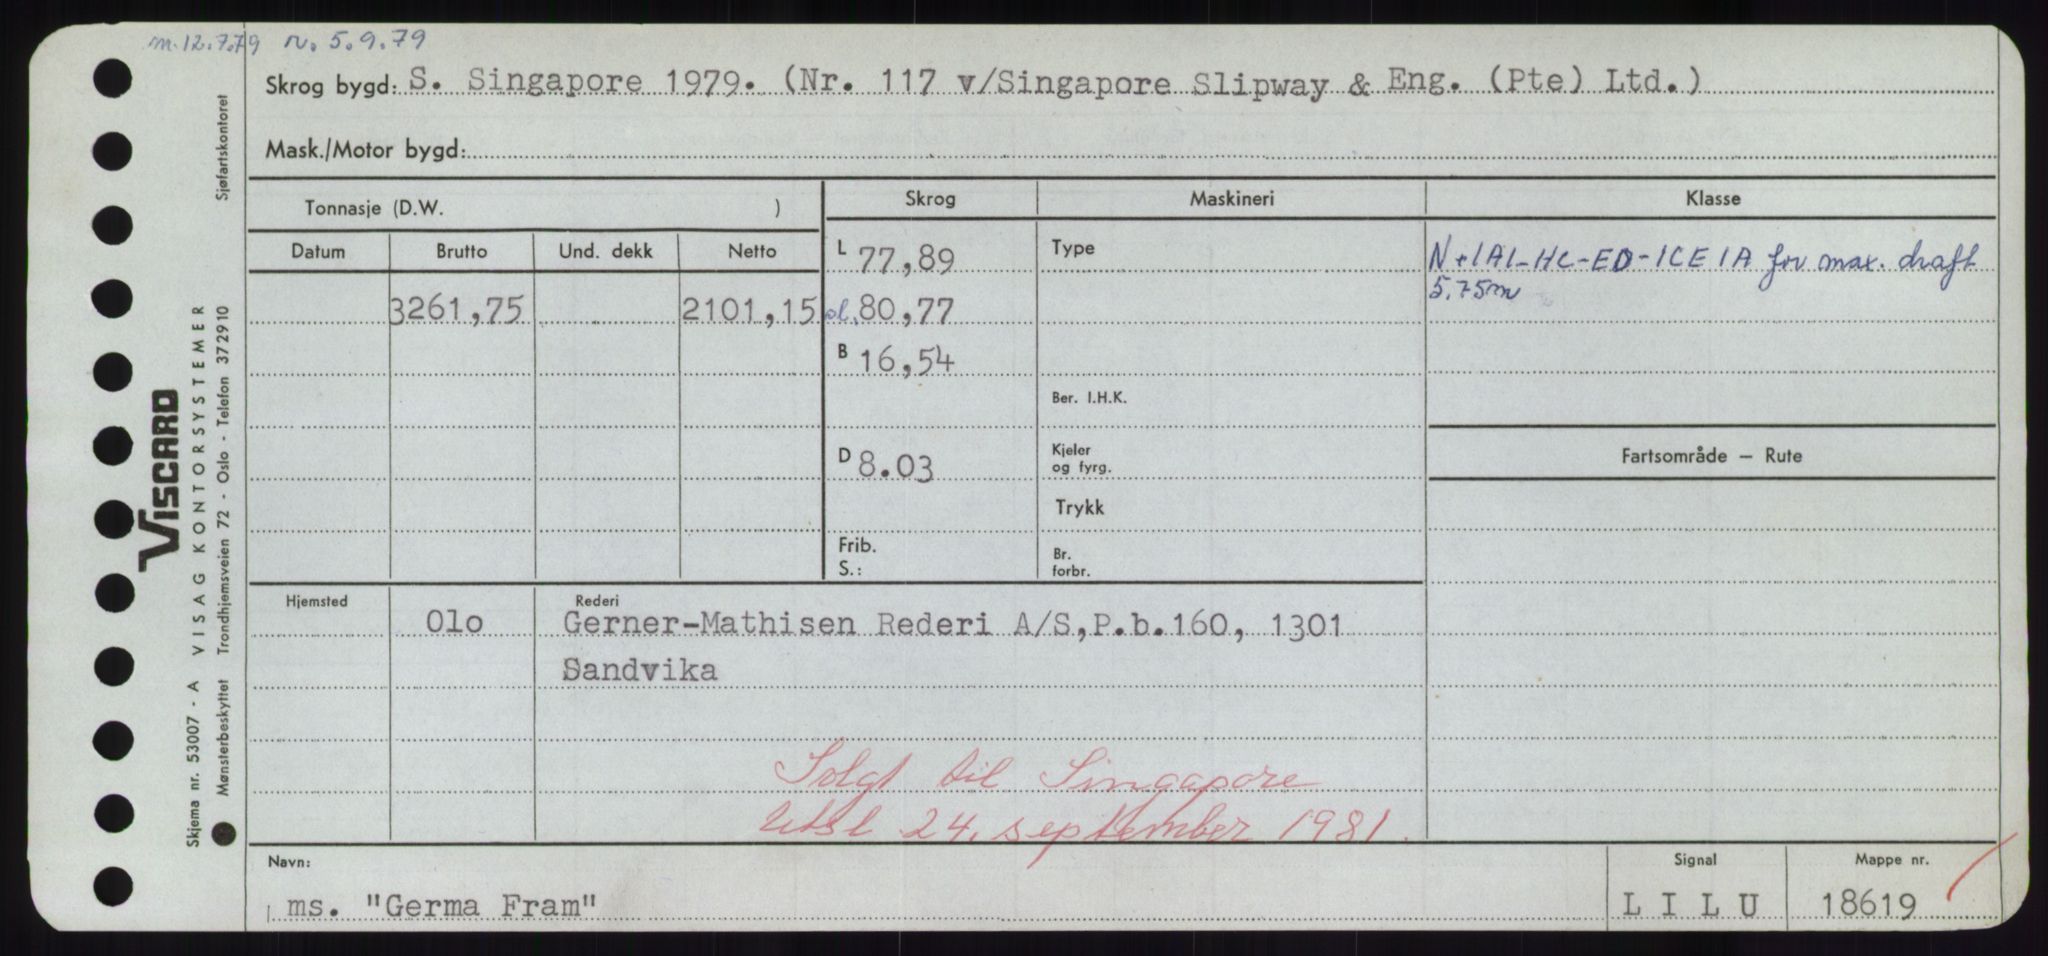 m. 12.7.79 n. 5.9.79
Skrog bygd: S. Singapore 1979. (Nr. 117 v/Singapore Slipway & Eng. (Pte) Ltd.)
Mask./Motor bygd:
Tonnasje (D.W. )
Skrog Maskineri Klasse
Datum Brutto Und. dekk Netto
L 77,89
Type
N +1A1-HC-EO-ICE 1A for max. draft
5.75m
3261,75 2101,15
ol. 80,77
B 16,54
Ber. I.H.K.
D 8.03
Kjeler
og fyrg.
Fartsområde — Rute
Trykk
Frib.
S.:
Br.
forbr.
Hjemsted Rederi
Olo Gerner-Mathisen Rederi A/S,P.b.160, 1301
Sandvika
Solgt til Singapore
utsl 24. september 1981.
Navn:
ms. "Germa Fram"
Signal
L I L U
Mappe nr.
18619
VISCARD
Skjema nr. 53007 - A VISAG KONTORSYSTEMER
Mønsterbeskyttet Trondhjemsveien 72 - Oslo - Telefon 372910 Sjøfartskontoret